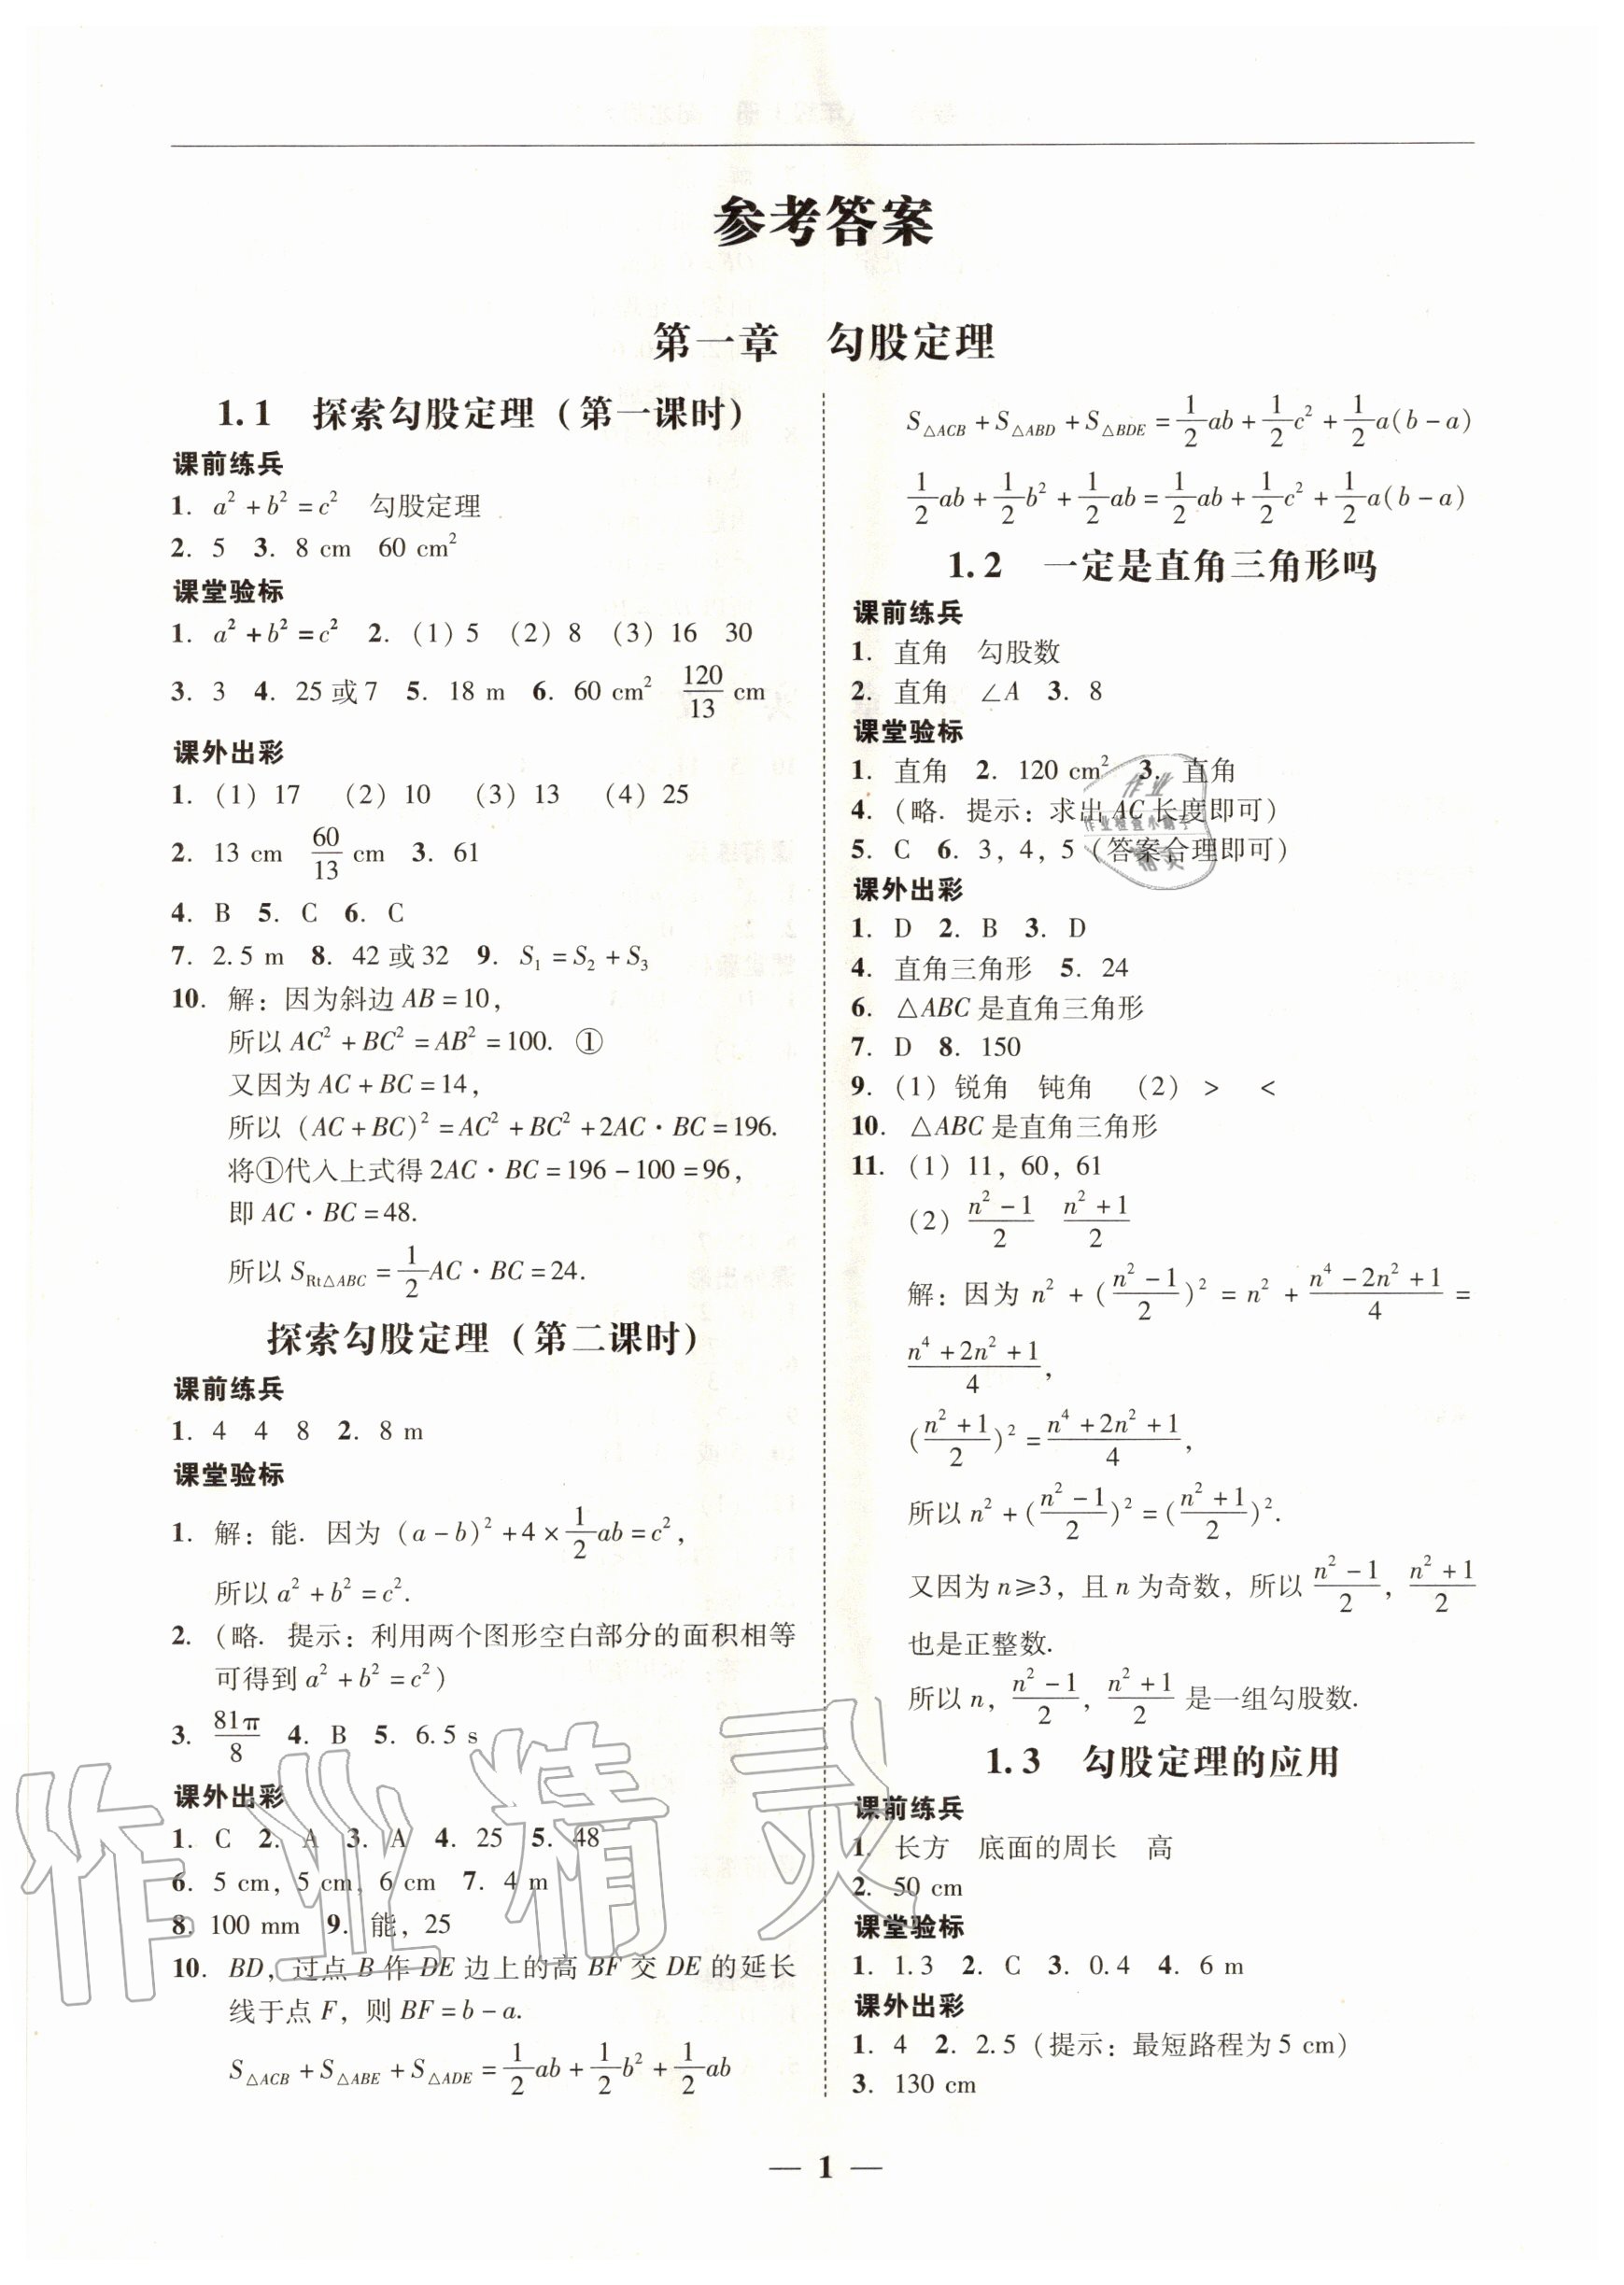 参考答案
第一章　勾股定理
1.1　探索勾股定理（第一课时）
课前练兵
1. a² + b² = c²　勾股定理
2. 5　3. 8 cm　60 cm²
课堂验标
1. a² + b² = c²　2. (1) 5　(2) 8　(3) 16　30
3. 3　4. 25或7　5. 18 m　6. 60 cm²　120/13 cm
课外出彩
1. (1) 17　(2) 10　(3) 13　(4) 25
2. 13 cm　60/13 cm　3. 61
4. B　5. C　6. C
7. 2.5 m　8. 42或32　9. S₁ = S₂ + S₃
10. 解：因为斜边 AB = 10，
所以 AC² + BC² = AB² = 100. ①
又因为 AC + BC = 14，
所以 (AC + BC)² = AC² + BC² + 2AC · BC = 196.
将①代入上式得 2AC · BC = 196 - 100 = 96，
即 AC · BC = 48.
所以 S_Rt△ABC = 1/2 AC · BC = 24.
探索勾股定理（第二课时）
课前练兵
1. 4　4　8　2. 8 m
课堂验标
1. 解：能. 因为 (a - b)² + 4 × 1/2 ab = c²，
所以 a² + b² = c².
2. （略. 提示：利用两个图形空白部分的面积相等
可得到 a² + b² = c²）
3. 81π/8　4. B　5. 6.5 s
课外出彩
1. C　2. A　3. A　4. 25　5. 48
6. 5 cm，5 cm，6 cm　7. 4 m
8. 100 mm　9. 能，25
10. BD，过点 B 作 DE 边上的高 BF 交 DE 的延长
线于点 F，则 BF = b - a.
S△ACB + S△ABE + S△ADE = 1/2 ab + 1/2 b² + 1/2 ab
S△ACB + S△ABD + S△BDE = 1/2 ab + 1/2 c² + 1/2 a(b - a)
1/2 ab + 1/2 b² + 1/2 ab = 1/2 ab + 1/2 c² + 1/2 a(b - a)
1.2　一定是直角三角形吗
课前练兵
1. 直角　勾股数
2. 直角　∠A　3. 8
课堂验标
1. 直角　2. 120 cm²　3. 直角
4. （略. 提示：求出 AC 长度即可）
5. C　6. 3，4，5（答案合理即可）
课外出彩
1. D　2. B　3. D
4. 直角三角形　5. 24
6. △ABC 是直角三角形
7. D　8. 150
9. (1) 锐角　钝角　(2) >　<
10. △ABC 是直角三角形
11. (1) 11，60，61
(2) (n² - 1)/2　(n² + 1)/2
解：因为 n² + ((n² - 1)/2)² = n² + (n⁴ - 2n² + 1)/4 =
(n⁴ + 2n² + 1)/4，
((n² + 1)/2)² = (n⁴ + 2n² + 1)/4，
所以 n² + ((n² - 1)/2)² = ((n² + 1)/2)².
又因为 n ≥ 3，且 n 为奇数，所以 (n² - 1)/2，(n² + 1)/2
也是正整数.
所以 n，(n² - 1)/2，(n² + 1)/2 是一组勾股数.
1.3　勾股定理的应用
课前练兵
1. 长方　底面的周长　高
2. 50 cm
课堂验标
1. 1.3　2. C　3. 0.4　4. 6 m
课外出彩
1. 4　2. 2.5（提示：最短路程为 5 cm）
3. 130 cm
— 1 —
作业精灵
作业
作业检查小助手
精灵